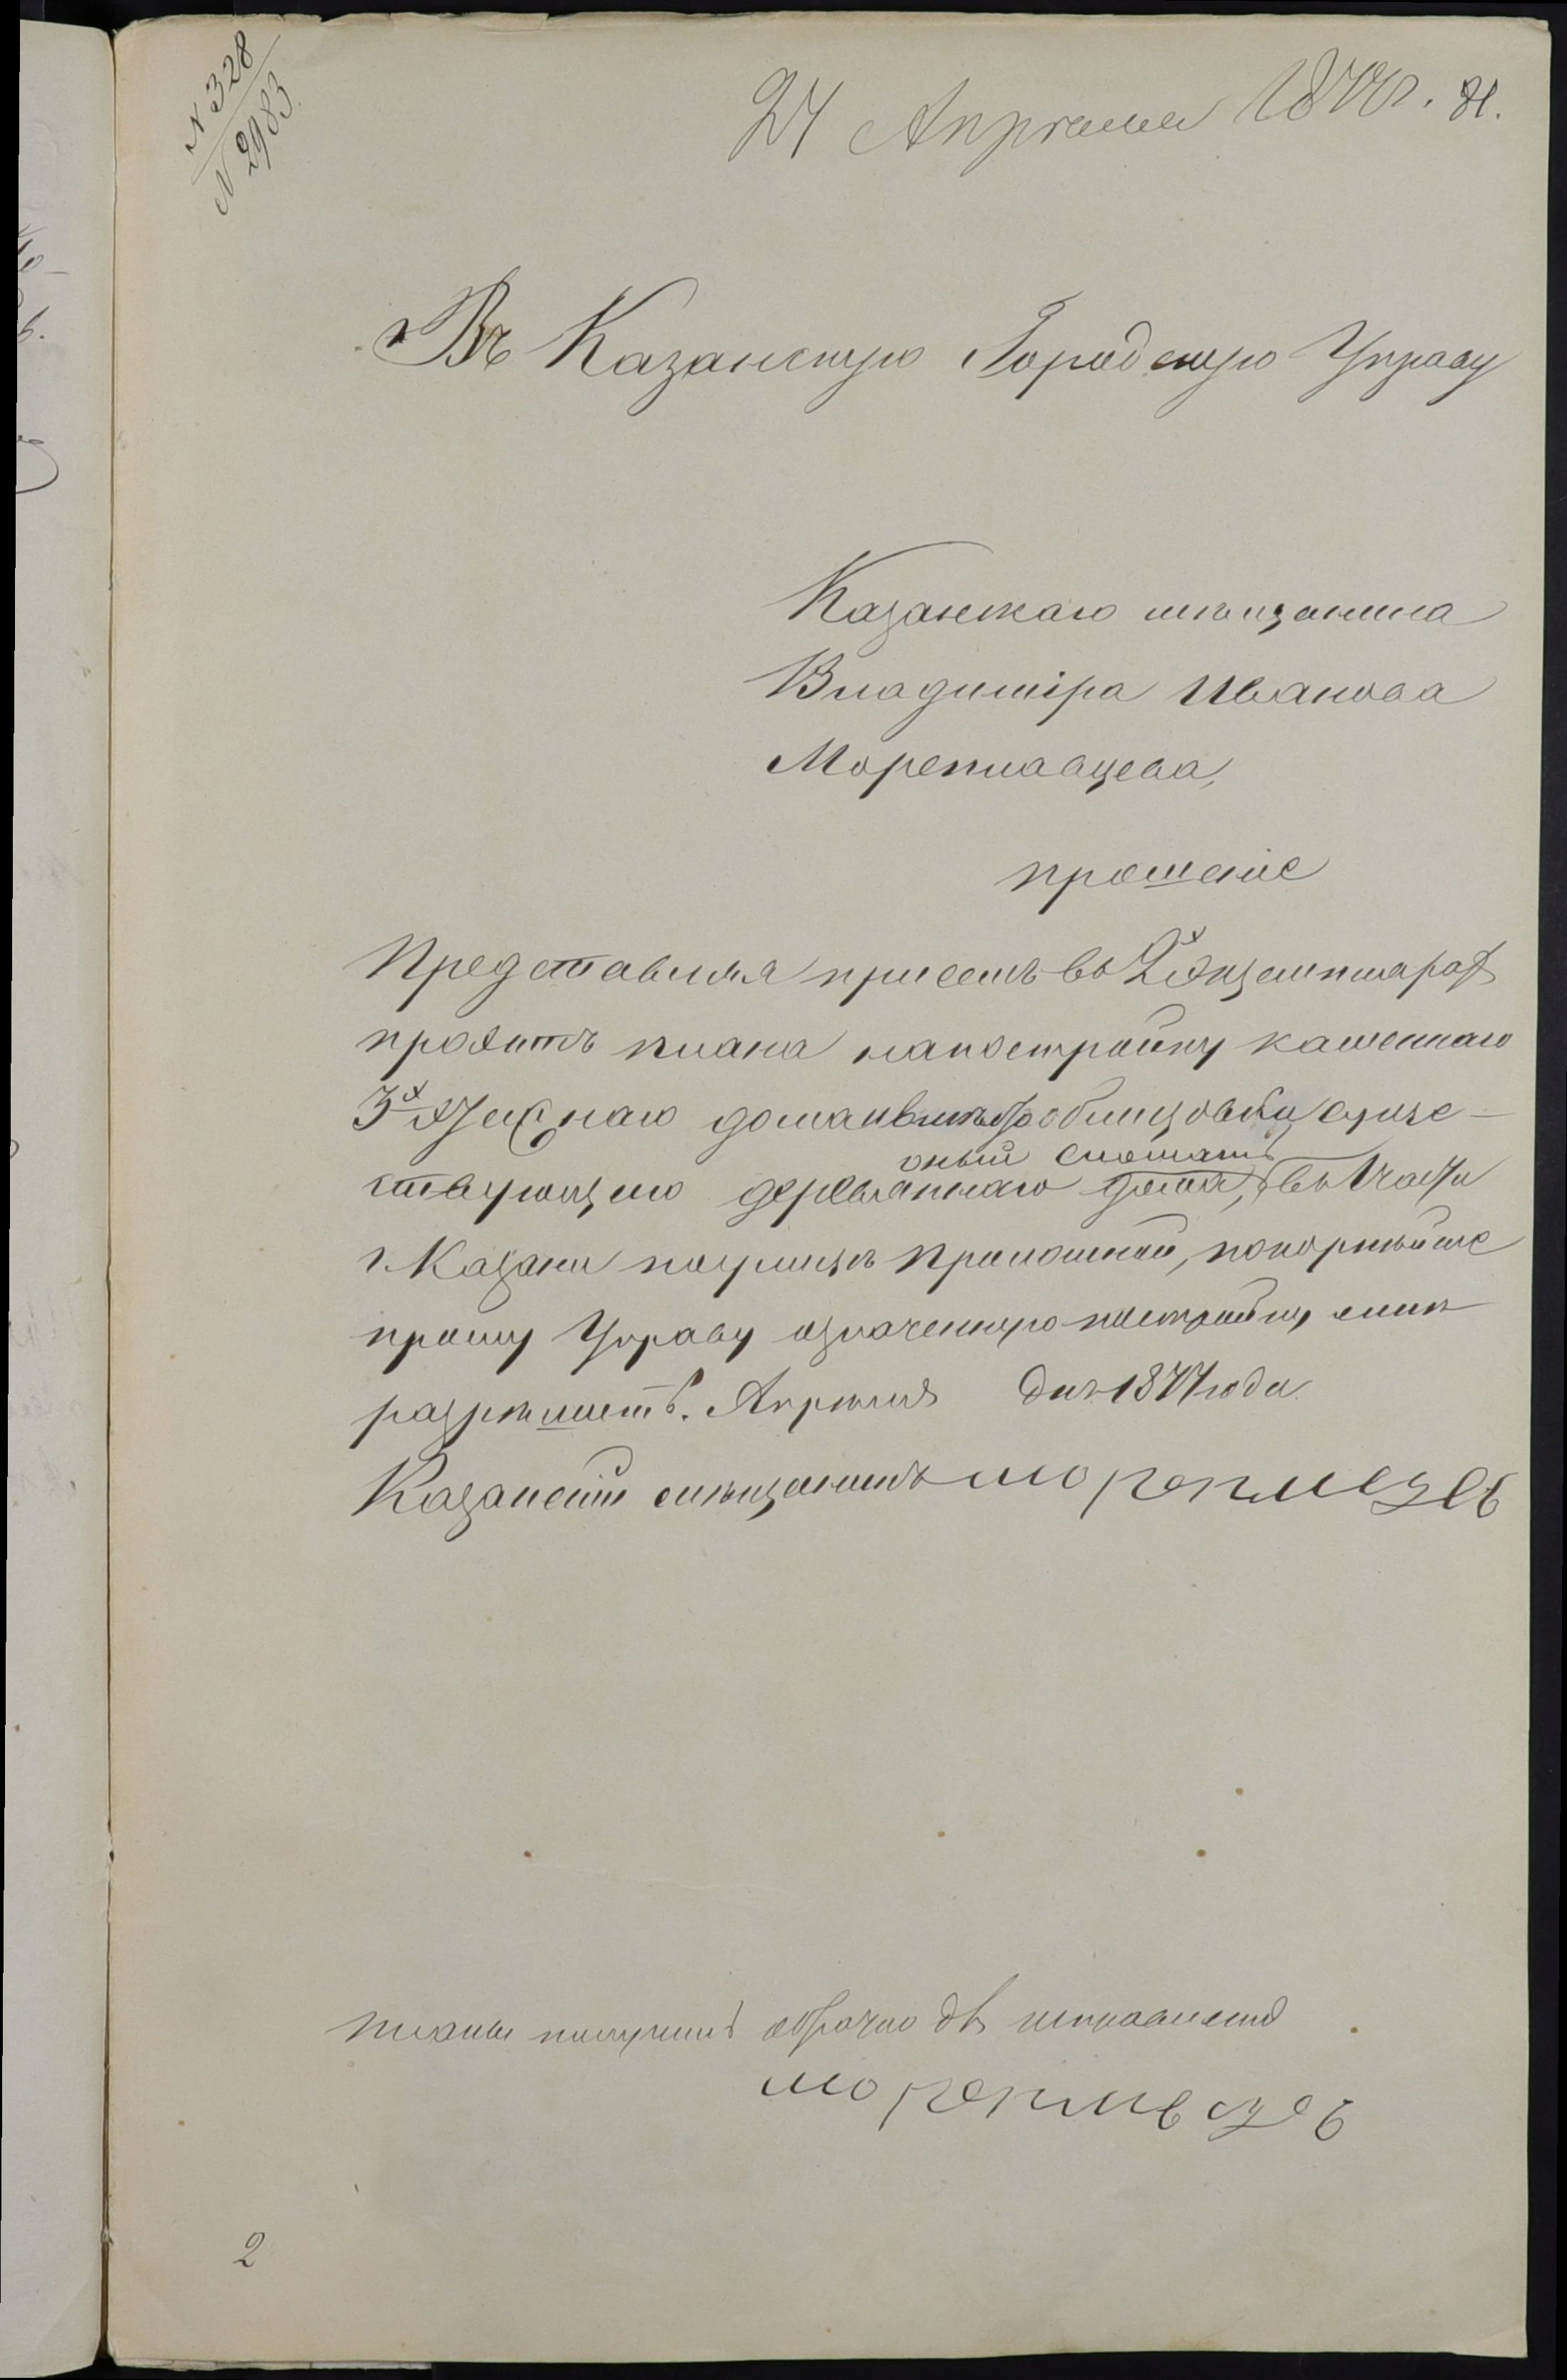 N 328
N 2983
24 Апреля 1877 г. 81.
Въ Казанскую Городскую Управу
Казанскаго мѣщанина
Владимiра Иванова
Мореплавцева,
прошенiе
Представляя присемъ во 2х экземплярахъ
проэктъ плана на постройку каменнаго
3х этажнаго дома вмѣсто облицовки суще-
оный сломать
ствующаго деревяннаго дома, въ 1 части
г. Казани по улицѣ Проломной, покорнѣйше
прошу Управу означенную постройку мнѣ
разрѣшить. Апрѣля дня 1877 года
Казанскiй мѣщанинъ Мореплавцевъ
планы получилъ обратно для исправленiя
Мореплавцевъ
2